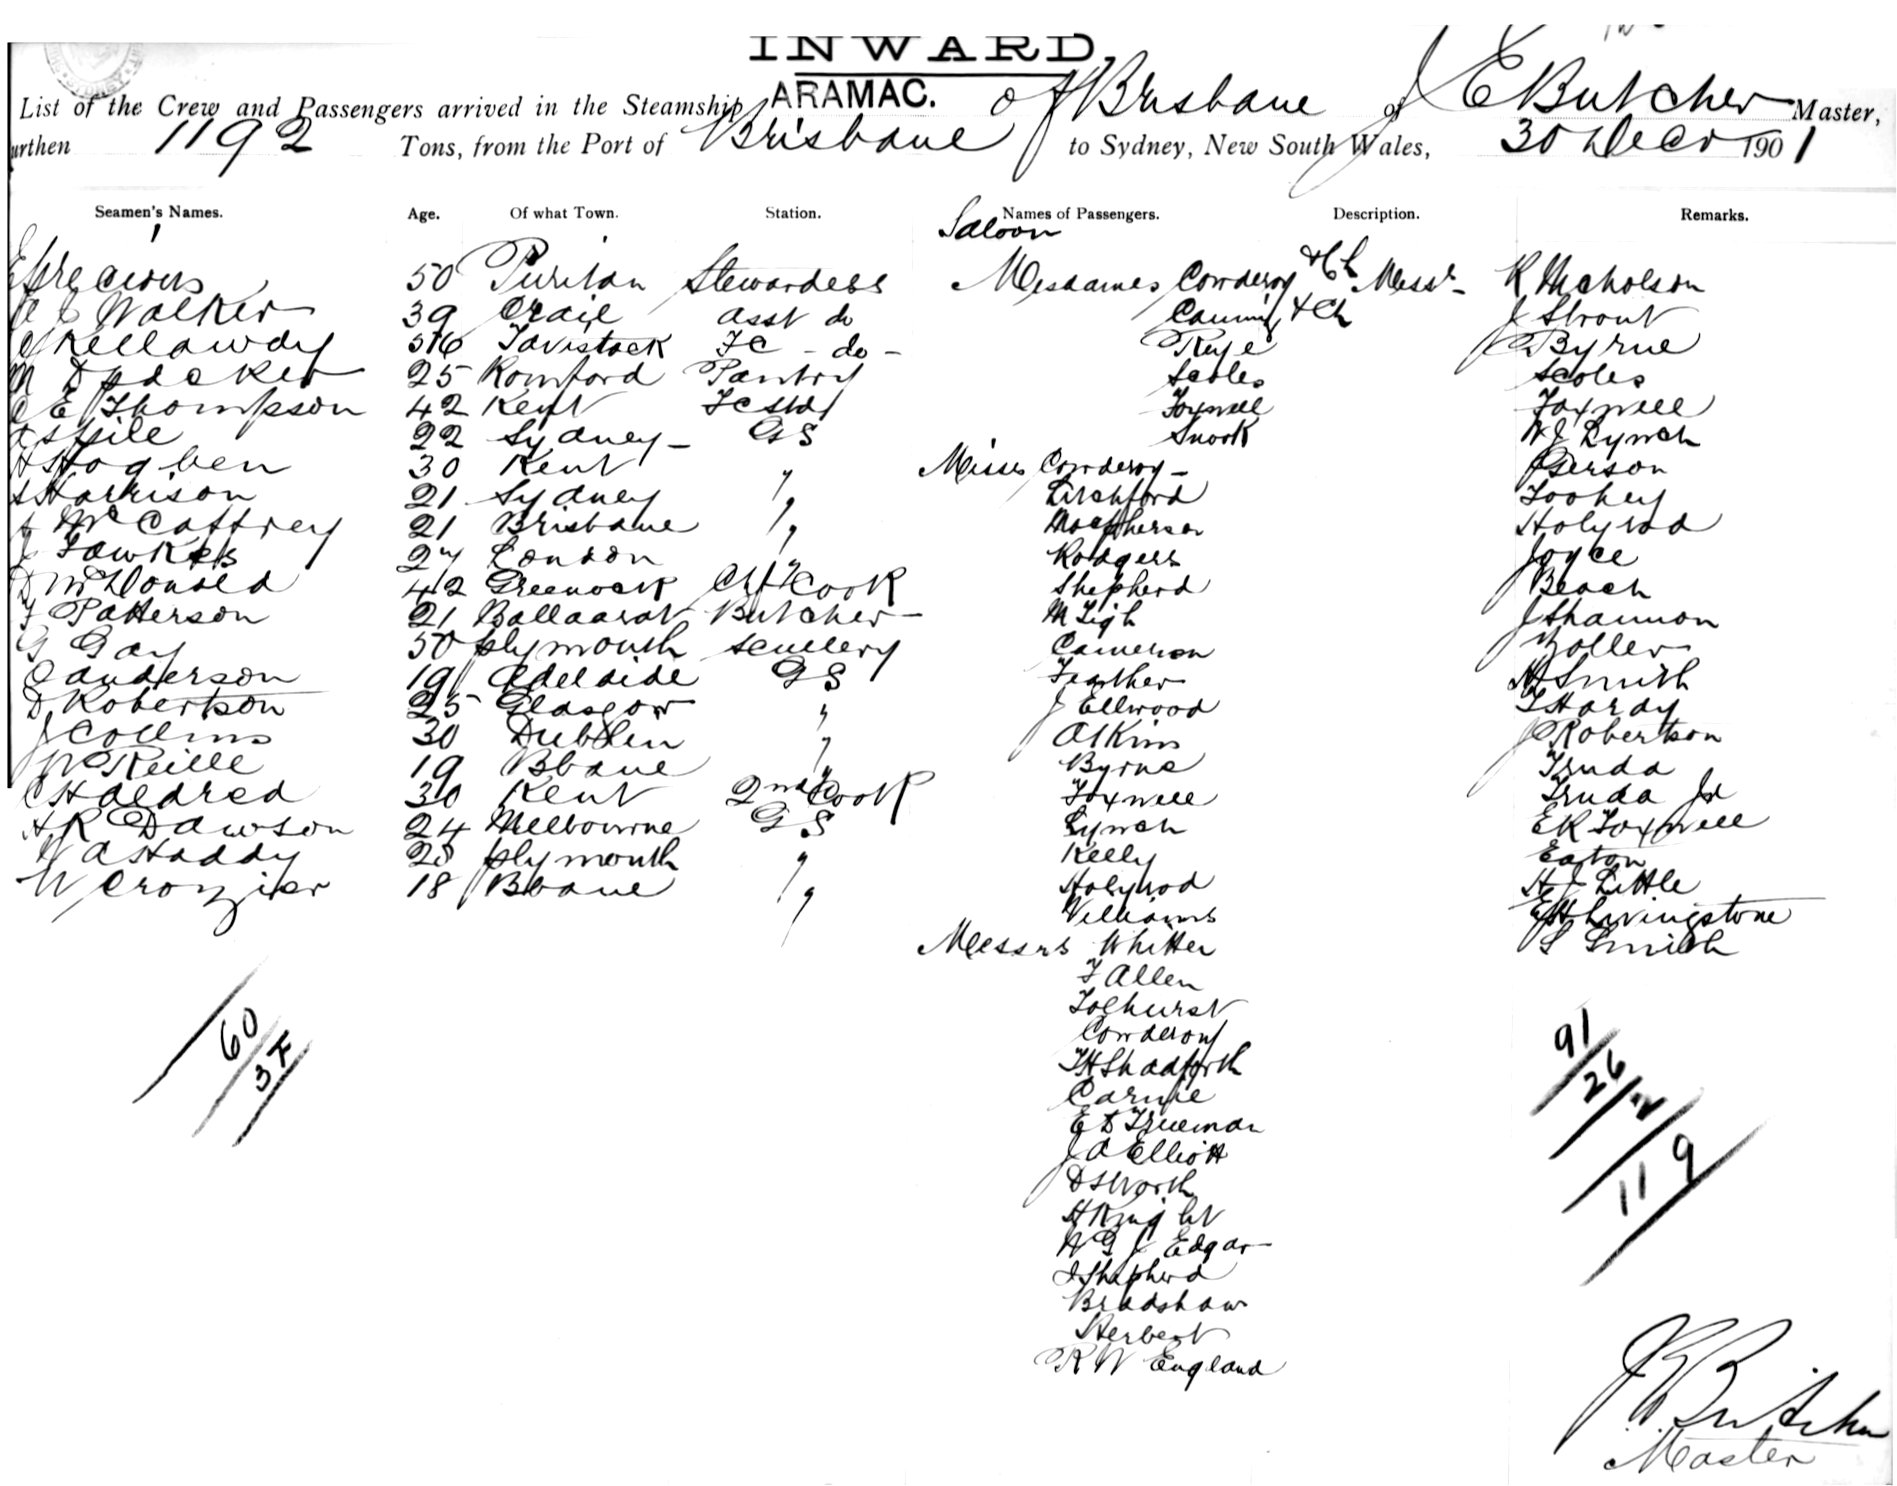 INWARD.
List of the Crew and Passengers arrived in the Steamship ARAMAC. of Brisbane of J E Butcher Master,
urthen 1192 Tons, from the Port of Brisbane to Sydney, New South Wales, 30 Decr 1901
Seamen's Names. Age. Of what Town. Station. Names of Passengers. Description. Remarks.
Saloon
50 Puritan Stewardess Mesdames Cowderoy & Ch Messrs R Nicholson
Walker 39 Crail asst do Canning & Ch J Strout
Kellaway Tavistock FC - do - Byrne
25 Romford Pantry Scoles Scoles
E Thompson 42 Kent FC Std Foxwell Foxwell
22 Sydney - GS Snook W J Lynch
H Hogben 30 Kent " Misses Cowderoy - Gerson
Harrison 21 Sydney " Litchford Toohey
J McCaffrey 21 Brisbane " Macpherson Holyrod
J Fawkes 27 London " Rodgers Joyce
D McDonald 42 Greenock Chf Cook Shepherd Beach
F Patterson 21 Ballaarat Butcher M Ligh J Shannon
G Gay 50 plymouth scullery Cameron Zoller
Anderson 19 Adelaide GS Feather H Smith
D Robertson 25 Glasgow " J Ellwood T Hardy
J Collins 30 Dublin " Atkins J Robertson
19 Bbane " Byrne Truda
C Haldred 30 Kent 2nd Cook Foxwell Truda Jr
H R Dawson 24 Melbourne GS Lynch E R Foxwell
W A Haddy 28 plymouth " Kelly Eaton
W Crozier 18 Bbane " Holyrod H J Little
Williams E H Livingstone
Messrs Whitter S Smith
F Allen
Tolhurst
Cowderoy
T H Shadforth
Carnie
E D Trueman
J A Elliott
D S Worth
H Knight
W G J Edgar
J Shepherd
Bradshaw
Herbert
R W England
60
3F
91
26
2
119
J E Butcher
Master